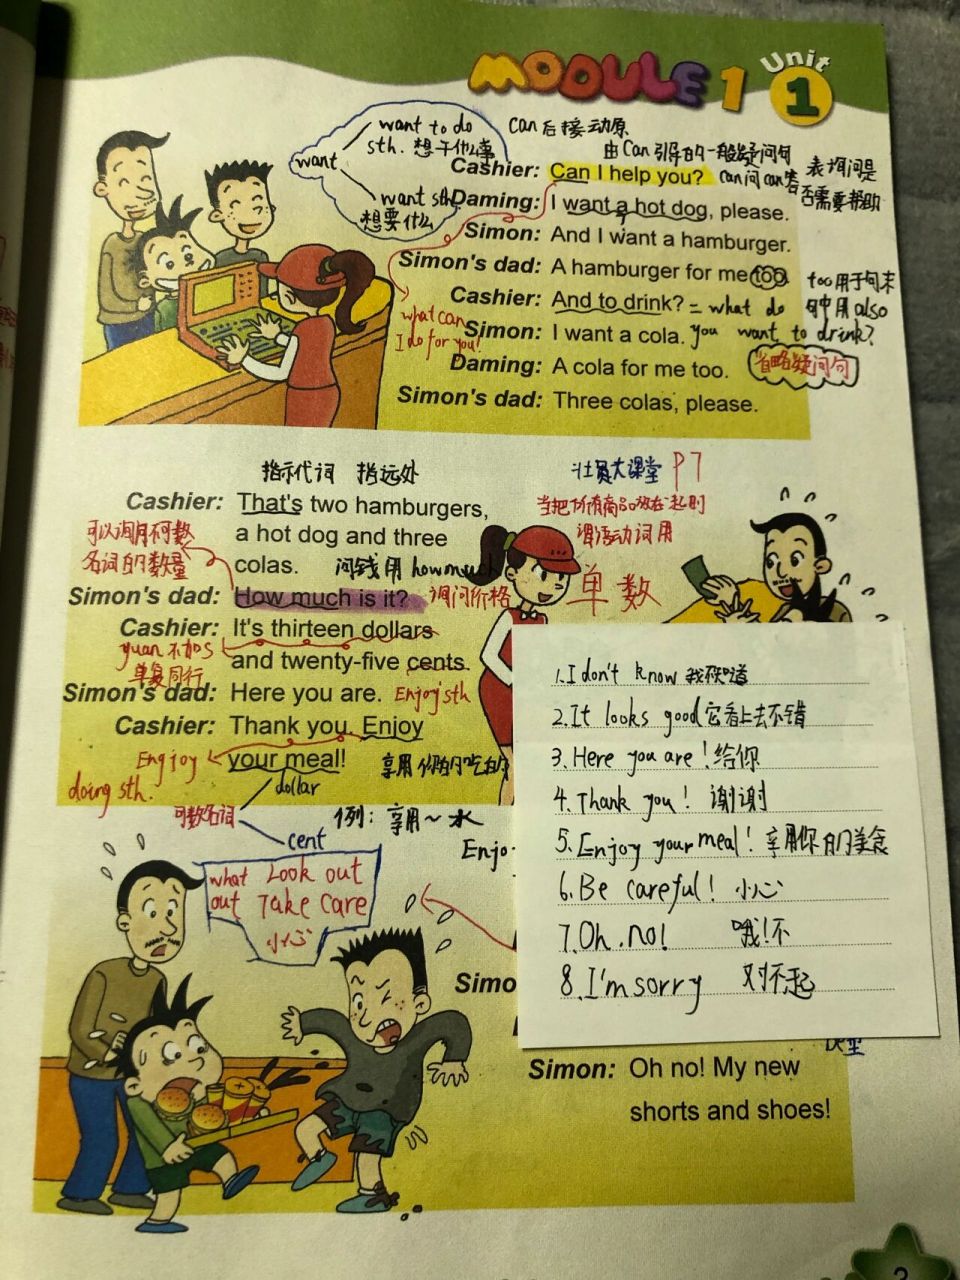 MODULE 1 Unit 1
want
want to do
sth. 想干什么事
want sth
想要什么
Can后接动原
由Can引导的一般疑问句
表询问是
否需要帮助
can问can答
Cashier: Can I help you?
Daming: I want a hot dog, please.
Simon: And I want a hamburger.
Simon's dad: A hamburger for me too.
too用于句末
句中用also
Cashier: And to drink? = what do
you want to drink?
what can
I do for you!
Simon: I want a cola.
Daming: A cola for me too.
省略疑问句
Simon's dad: Three colas, please.
指示代词 指远处
壮员大课堂 P7
Cashier: That's two hamburgers,
a hot dog and three
colas.
当把所有商品放在一起则
谓语动词用
单数
可以询问不可数
名词的数量
问钱用how much
Simon's dad: How much is it?
询问价格
Cashier: It's thirteen dollars
and twenty-five cents.
yuan不加s
单复同行
Simon's dad: Here you are.
Enjoy sth
Cashier: Thank you. Enjoy
your meal!
Engjoy
doing sth.
享用你的吃的
可数名词
dollar
cent
例：享用~水
Enjo
what Look out
out Take care
小心
1.I don't know 我不知道
2.It looks good它看上去不错
3.Here you are!给你
4.Thank you! 谢谢
5.Enjoy your meal! 享用你的美食
6.Be careful! 小心
7.Oh.no! 哦!不
8.I'm sorry 对不起
Simo
Simon: Oh no! My new
shorts and shoes!